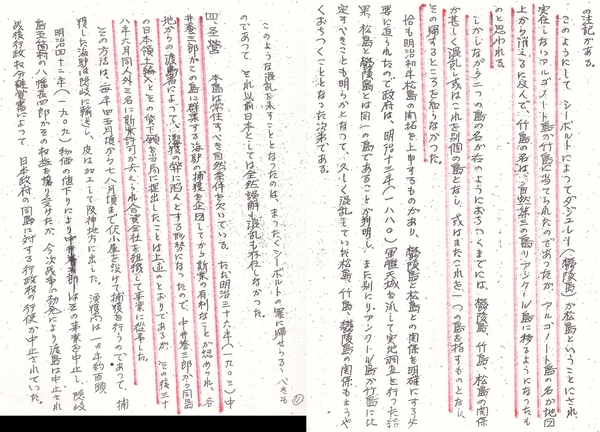 の注記がある。
このようにして、シーボルトによってダジュレー（欝陵島）が松島ということにされ、
実在しないアルゴノート島が竹島に当てられたのであったが、アルゴノート島の名が地図
上から消えるに及んで、竹島の名は、自然第三の島リアンクール島に移るようになったも
のと思われる。
しかしながら二つの島の名が右のようにおちつくまでには、欝陵島、竹島、松島の関係
が甚しく混乱し或はこれを別個の島となし、或はまたこれを一つの島を指すものとなし
その帰するところを知らなかった。
恰も明治初年松島の開拓を上申するものがあり、欝陵島と松島との関係を明確にする必
要に迫られたので政府は、明治十三年（一八八〇）軍艦天城を派して実地調査を行った結
果、松島と欝陵島とは同一の島であることが判明し、また別にリアンクール島が竹島に比
定すべきことも明らかとなって、久しく混乱していた松島、竹島、欝陵島の関係もようや
くおちつくこととなった次第である。
このような混乱を来すこととなったのは、まったくシーボルトの罪に帰せらるべきも
のであって、それ以前日本としては全然誤解も混乱も存在しなかった。
四、経営　本島は常住すべき自然条件を欠いている。ただ明治三十六年（一九〇三）中
井養三郎がこの島に群棲する海驢の捕獲を企図してから斯業の有利なことが認められ、各
地からの渡島者によって、濫獲の弊に陥らんとする形勢になったので、中井養三郎から同島
の日本領土編入とその貸下願を当局に提出したことは上述のとおりであるが、その後三十
八年六月同人外三名に斯業許可が与えられ合資会社を組織して事業に従事した。
その方法は、毎年四五月頃から七八月頃まで仮小屋を設けて捕獲を行うのであって、捕
獲した海驢は隠岐に輸送し、皮は加工して阪神地方に出した。漁獲高は一ヶ年約百頭
明治四十二年（一九〇九）物価の値下りにより中井養三郎はその事業を中止し、隠岐
島五箇村の八幡長四郎がその利益を譲り受けたが、今次戦争の勃発により渡島は中止され
戦後行政权分離覚書によって　日本政府の同島に対する行政权の行使が中止されていた。